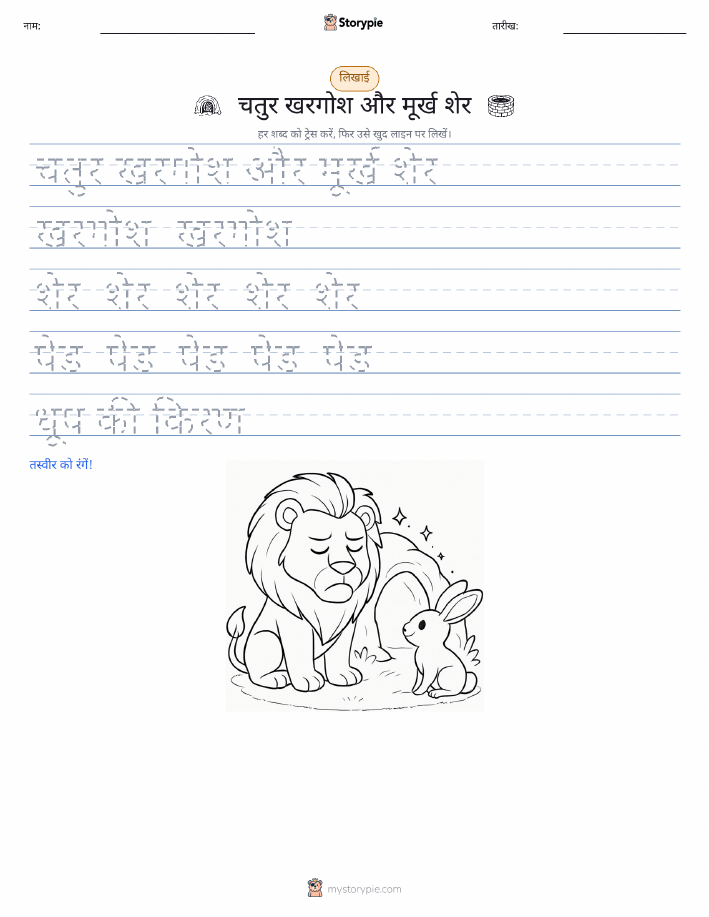 नाम:
Storypie
तारीख:
लिखाई
चतुर खरगोश और मूर्ख शेर
हर शब्द को ट्रेस करें, फिर उसे खुद लाइन पर लिखें।
चतुर खरगोश और मूर्ख शेर
खरगोश खरगोश
शेर शेर शेर शेर शेर
पेड पेड पेड पेड पेड
धूप की किरण
तस्वीर को रंगें!
mystorypie.com